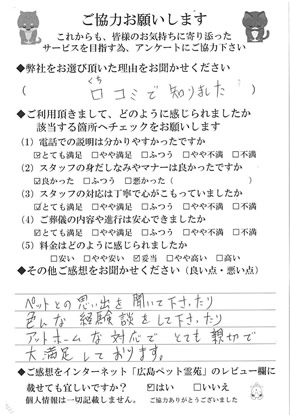 ご協力お願いします
これからも、皆様のお気持ちに寄り添った
サービスを目指す為、アンケートにご協力下さい
◆弊社をお選び頂いた理由をお聞かせください
くち
( 口コミで知りました )
◆ご利用頂きまして、どのように感じられましたか
該当する箇所へチェックをお願いします
(1) 電話での説明は分かりやすかったですか
☑とても満足 □やや満足 □ふつう □やや不満 □不満
(2) スタッフの身だしなみやマナーは良かったですか
☑良かった □ふつう □悪かった ( )
(3) スタッフの対応は丁寧で心がこもっていましたか
☑とても満足 □やや満足 □ふつう □やや不満 □不満
(4) ご葬儀の内容や進行は安心できましたか
☑とても満足 □やや満足 □ふつう □やや不満 □不満
(5) 料金はどのように感じられましたか
□安い □やや安い ☑妥当 □やや高い □高い
◆その他ご感想をお聞かせください (良い点・悪い点)
ペットとの思い出を聞いて下さったり
色んな経験談をして下さったり
アットホームな対応でとても親切で
大満足しております。
◆ご感想をインターネット「広島ペット霊苑」のレビュー欄に
載せても宜しいですか? ☑はい □いいえ
個人情報は一切記載しません。 ご協力ありがとうございました